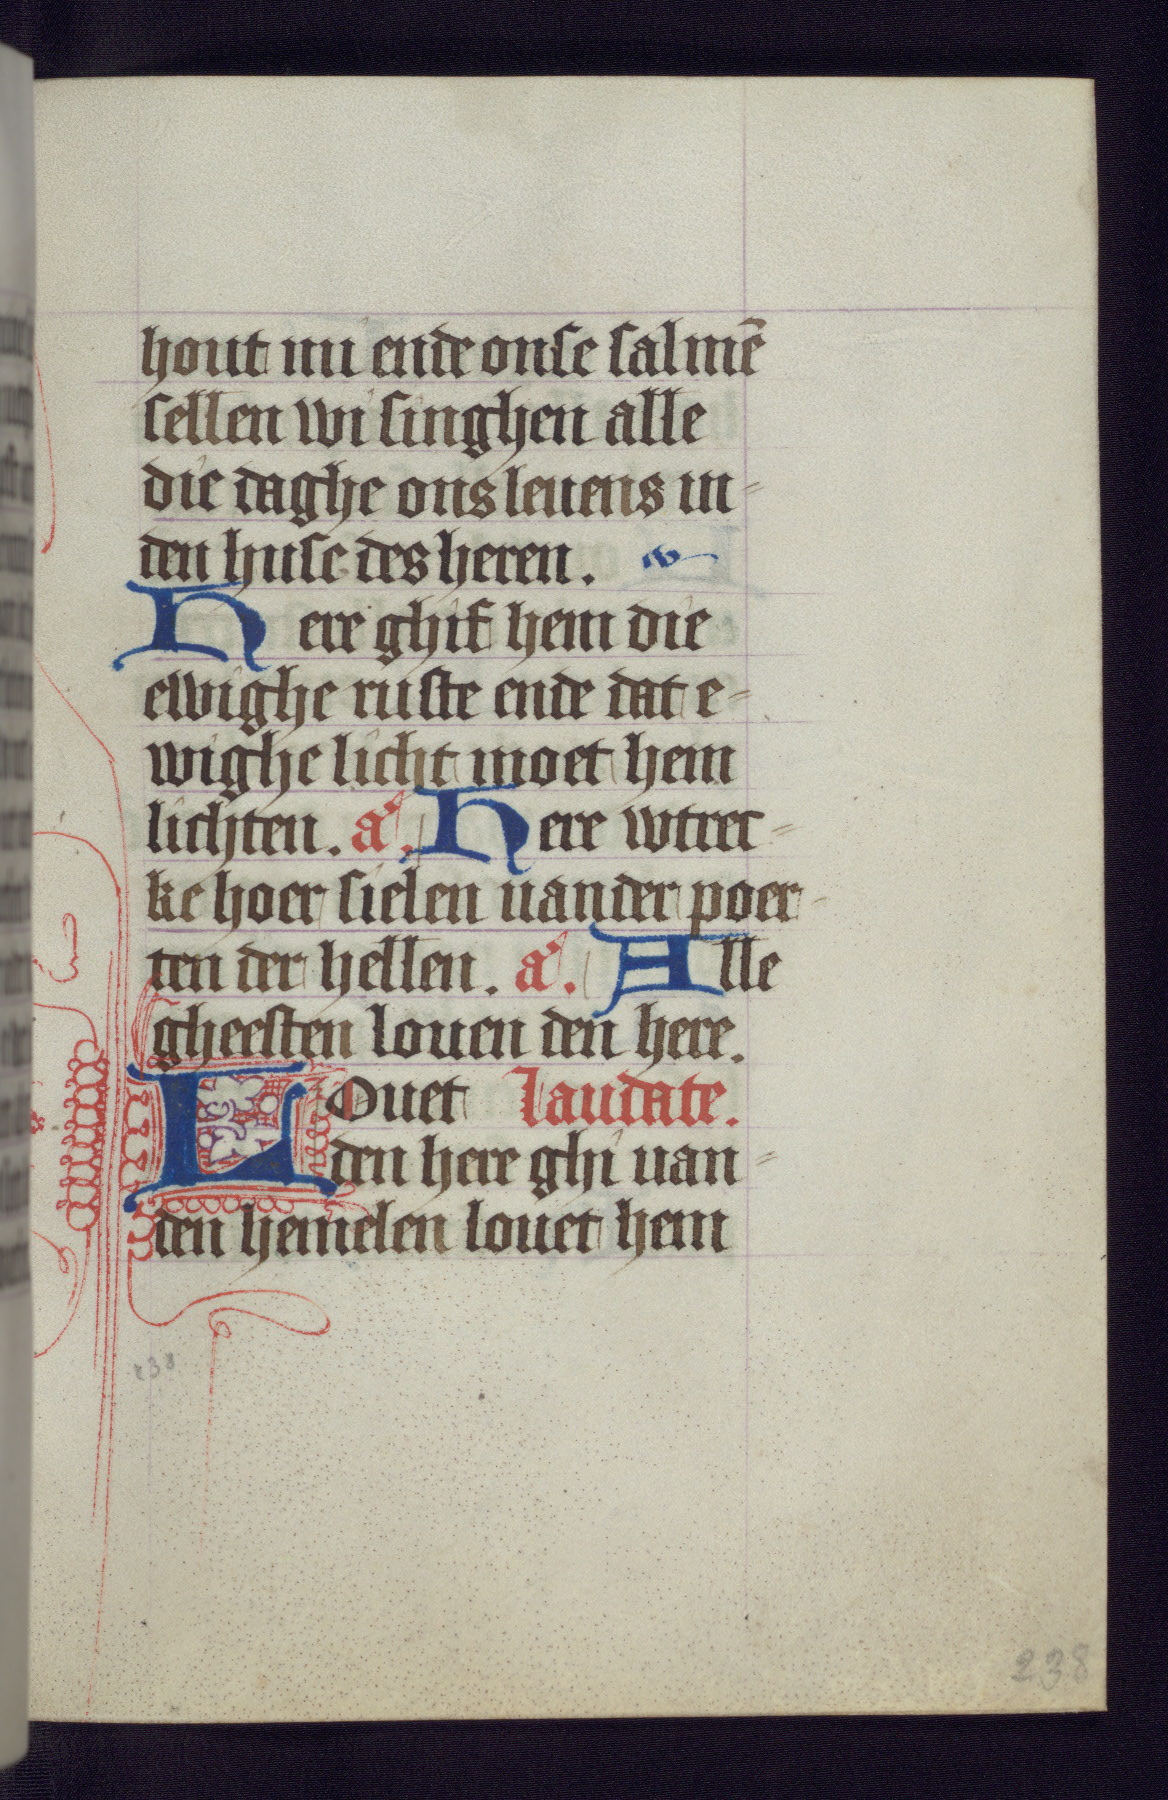 hout mi ende onse salmē
sellen wi singhen alle
die daghe ons leuens in-
den huse des heren.
Here ghif hem die
ewighe ruste ende dat e-
wighe licht moet hem
lichten. a. Here wtrec-
ke hoer sielen uander poer-
ten der hellen. a. Alle
gheesten louen den here.
Louet Laudate.
den here ghi uan-
den hemelen louet hem
238
238